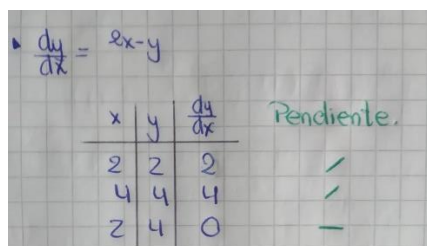 • dy/dx = 2x-y
x y dy/dx Pendiente.
2 2 2
4 4 4
2 4 0